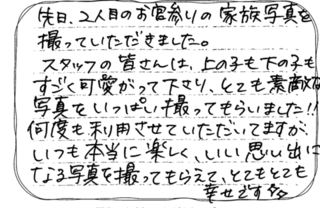 先日、2人目のお宮参りの家族写真を
撮っていただきました。
スタッフの皆さんは、上の子も下の子も
すごく可愛がって下さり、とても素敵な
写真をいっぱい撮ってもらいました!!
何度も利用させていただいてますが、
いつも本当に楽しく、いい思い出に
なる写真を撮ってもらえて、とてもとても
幸せです☆☆